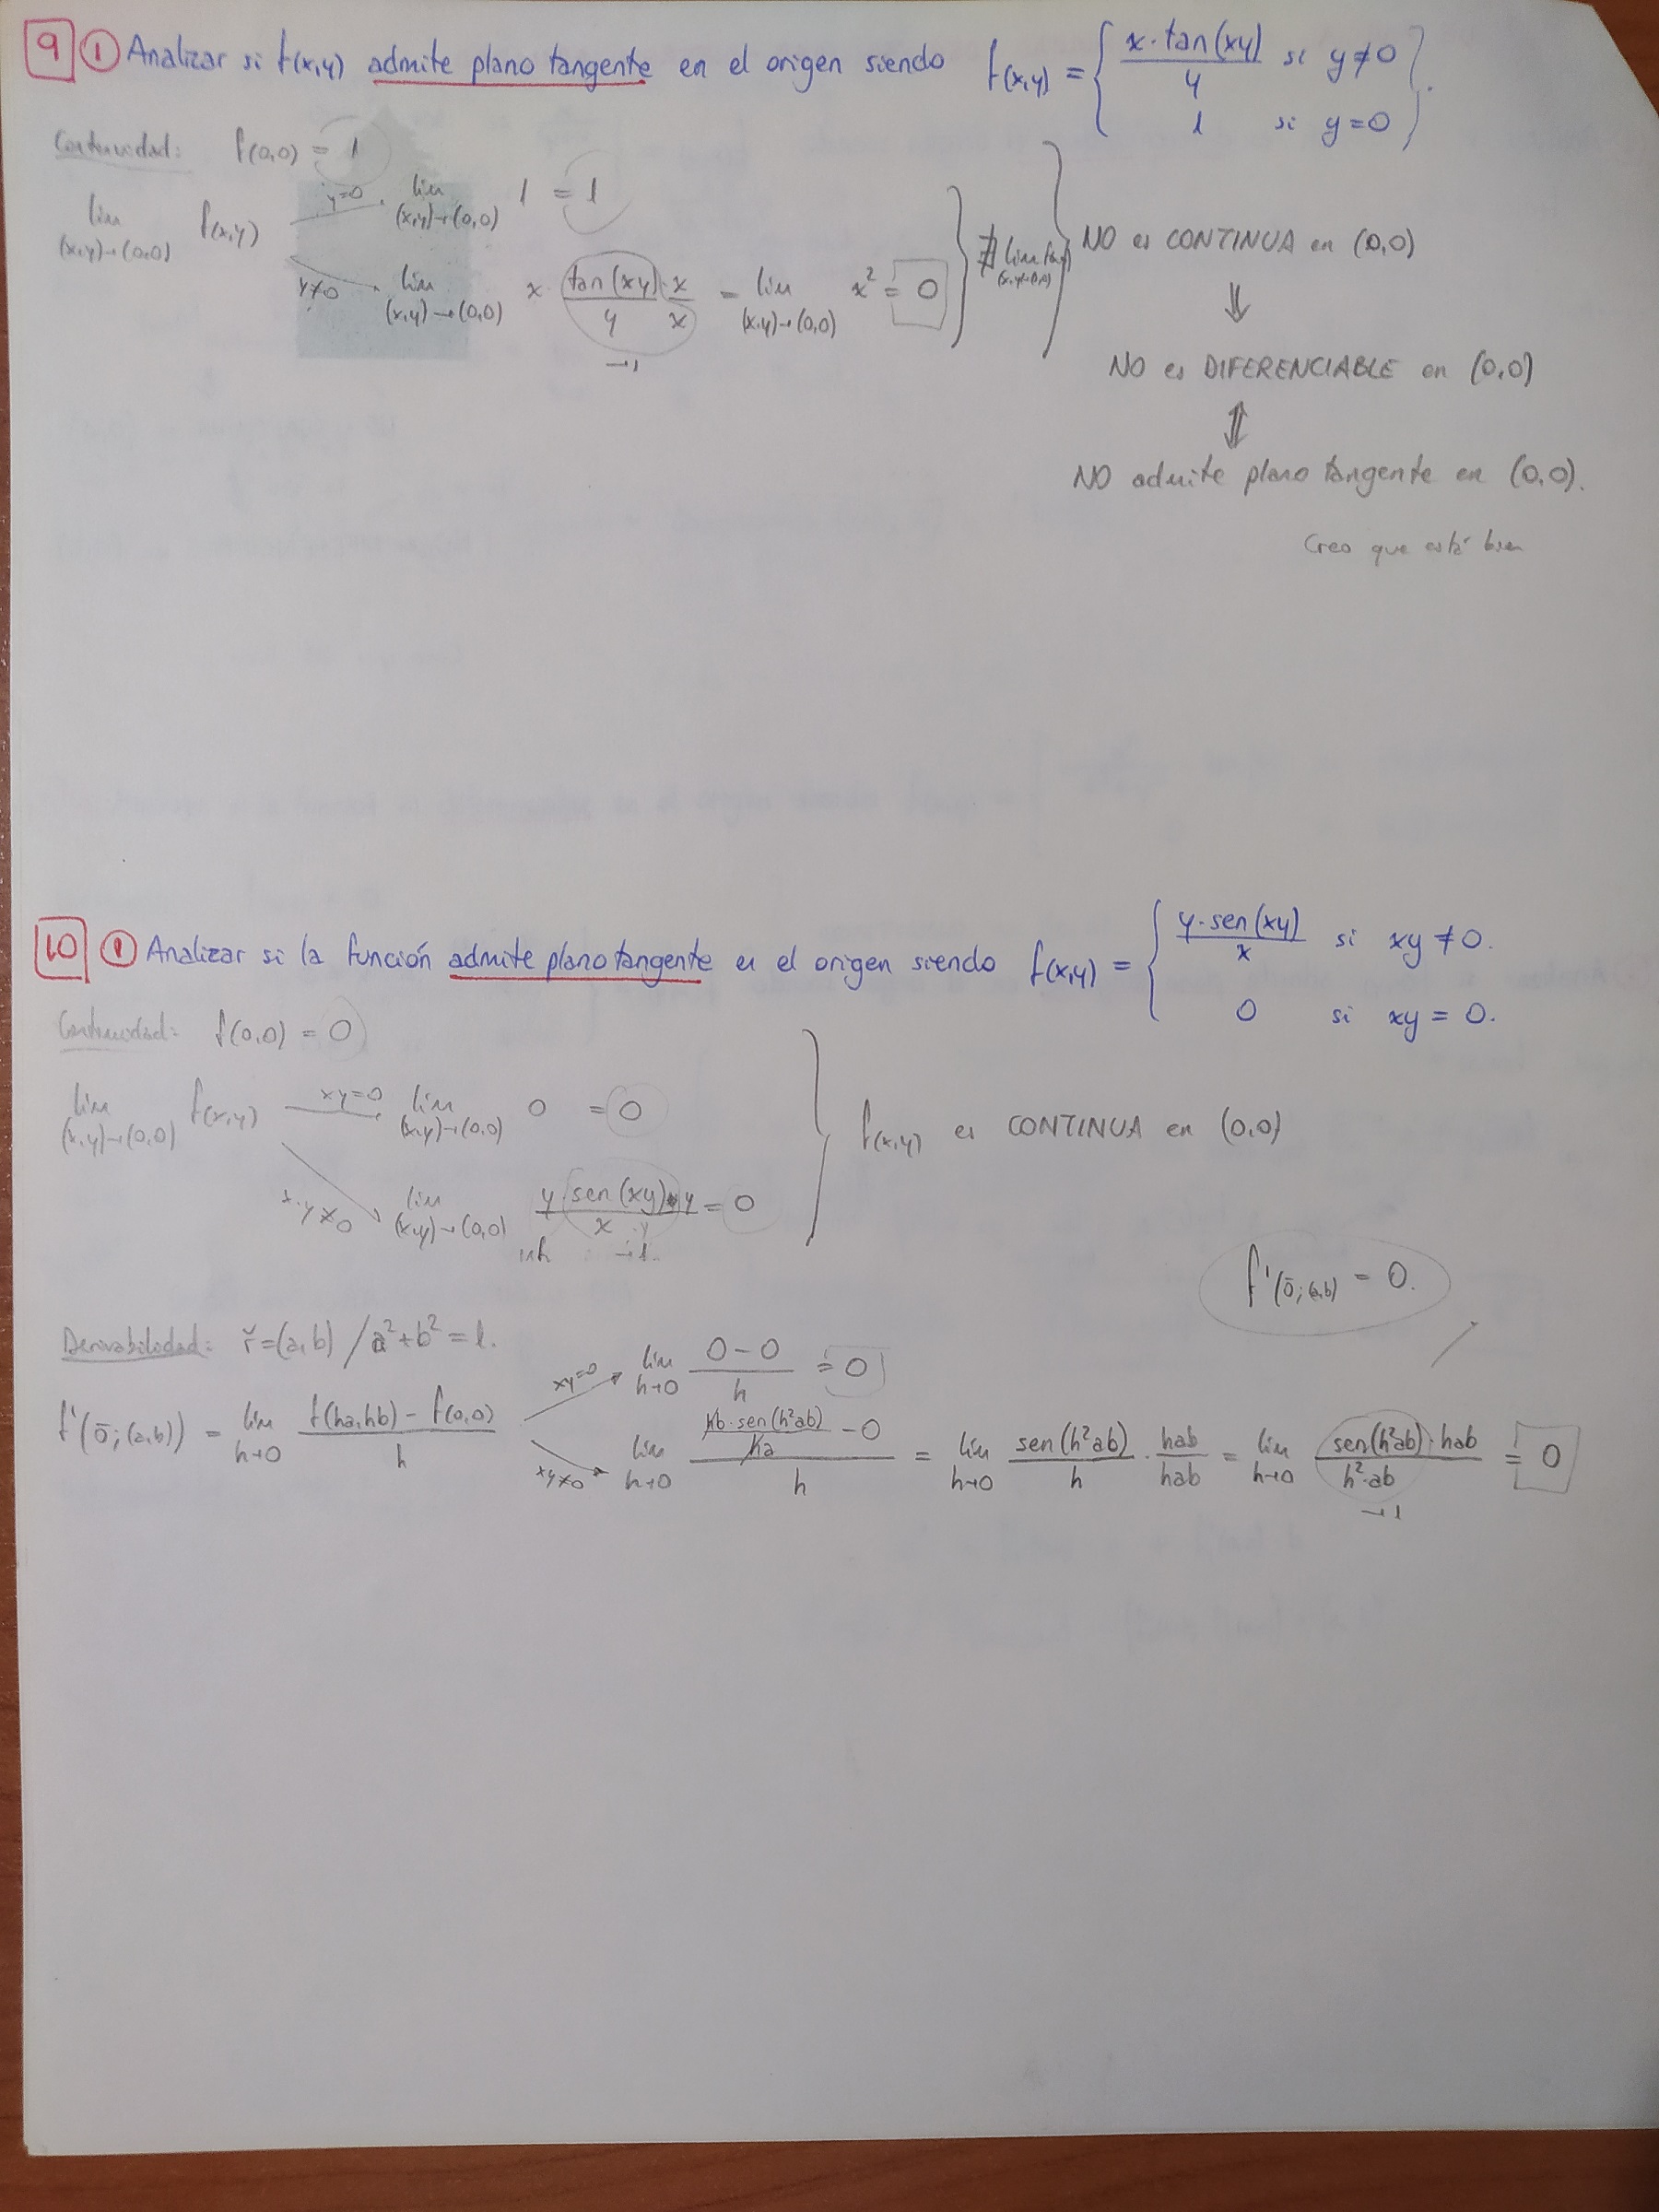 9 ① Analizar si f(x,y) admite plano tangente en el origen siendo f(x,y) = { x·tan(xy)/y si y≠0
1 si y=0 }.
Continuidad: f(0,0) = 1
lim (x,y)→(0,0) f(x,y) y=0 → lim (x,y)→(0,0) 1 = 1
y≠0 → lim (x,y)→(0,0) x · tan(xy)/y · x/x = lim (x,y)→(0,0) x² = 0
→1
∄ lim f(x,y) (x,y)→(0,0)
NO es CONTINUA en (0,0)
⇓
NO es DIFERENCIABLE en (0,0)
⇕
NO admite plano tangente en (0,0).
Creo que está bien
10 ① Analizar si la función admite plano tangente en el origen siendo f(x,y) = { y·sen(xy)/x si xy ≠ 0.
0 si xy = 0.
Continuidad: f(0,0) = 0
lim (x,y)→(0,0) f(x,y) xy=0 → lim (x,y)→(0,0) 0 = 0
x·y≠0 → lim (x,y)→(0,0) y·sen(xy)·y / x·y = 0
→1.
f(x,y) es CONTINUA en (0,0)
f'(ō;(a,b)) = 0.
Derivabilidad: ř=(a,b) / a²+b² = 1.
f'(ō;(a,b)) = lim h→0 f(ha,hb) – f(0,0) / h xy=0 → lim h→0 0 – 0 / h = 0
xy≠0 → lim h→0 hb·sen(h²ab)/ha – 0 / h = lim h→0 sen(h²ab)/h · hab/hab = lim h→0 sen(h²ab)·hab / h²·ab = 0
→1